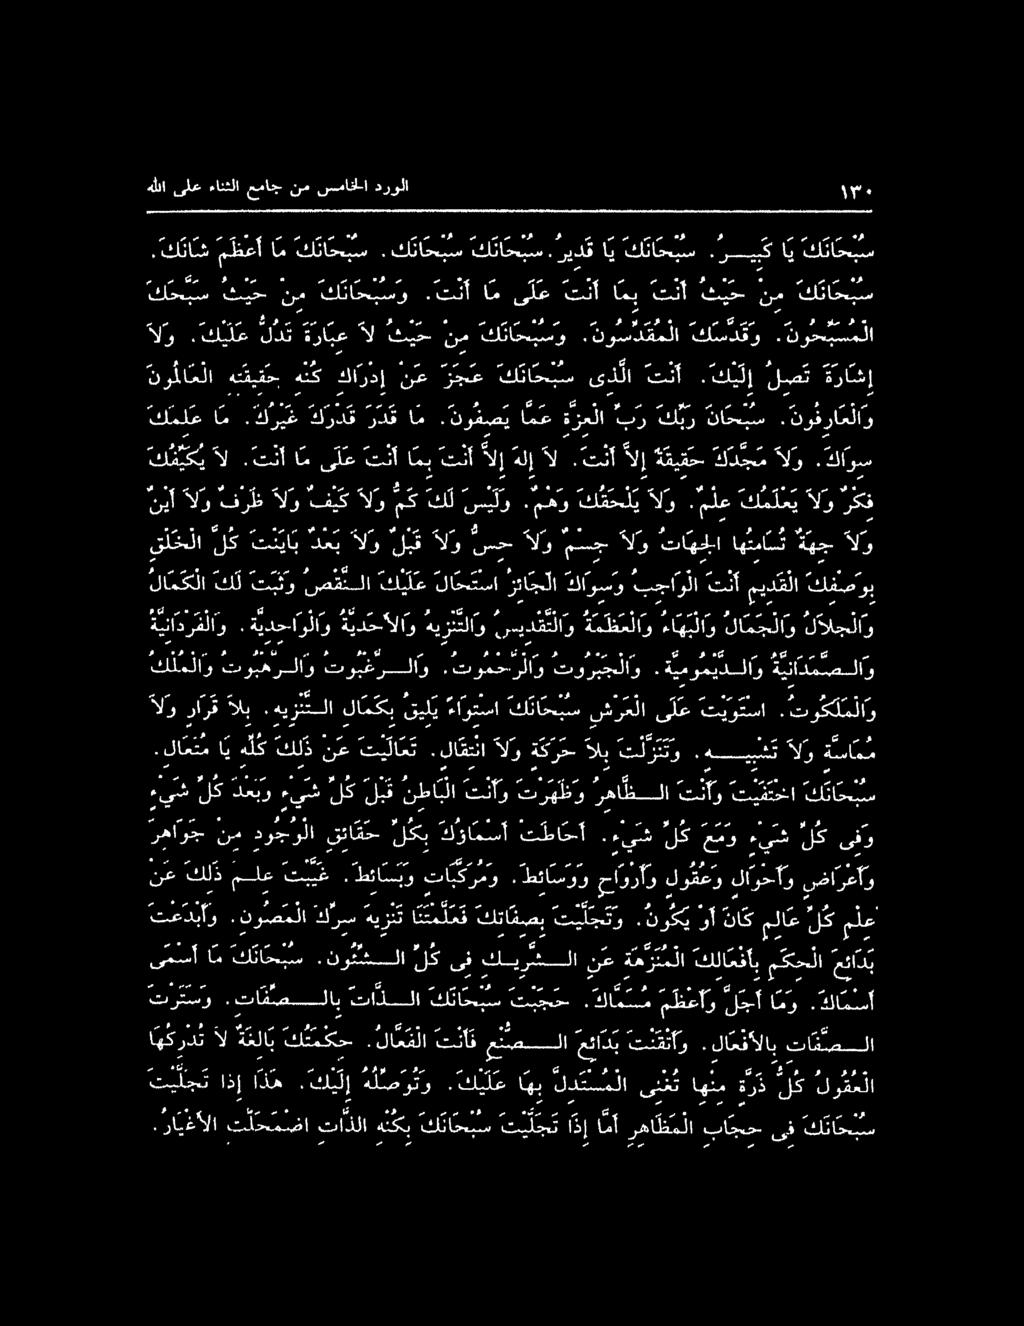 ١٣٠ الورد الخامس من جامع الثناء على الله
سُبْحَانَكَ يَا كَبِيــرُ. سُبْحَانَكَ يَا قَدِيرُ. سُبْحَانَكَ سُبْحَانَك. سُبْحَانَكَ مَا أَعْظَمَ شَانَكَ.
سُبْحَانَكَ مِنْ حَيْثُ أَنْتَ بِمَا أَنْتَ عَلَى مَا أَنْتَ. وَسُبْحَانَكَ مِنْ حَيْثُ سَبَّحَكَ
الْمُسَبِّحُونَ. وَقَدَّسَكَ الْمُقَدِّسُونَ. وَسُبْحَانَكَ مِنْ حَيْثُ لاَ عِبَارَةَ تَدُلُّ عَلَيْكَ. وَلاَ
إِشَارَةَ تَصِلُ إِلَيْكَ. أَنْتَ الَّذِى سُبْحَانَكَ عَجَزَ عَنْ إِدْرَاكِ كُنْهِ حَقِيقَتِهِ الْعَالِمُونَ
وَالْعَارِفُونَ. سُبْحَانَ رَبِّكَ رَبِّ الْعِزَّةِ عَمَّا يَصِفُونَ. مَا قَدَرَ قَدْرَكَ غَيْرُكَ. مَا عَلِمَكَ
سِوَاكَ. وَلاَ مَجَّدَكَ حَقِيقَةً إِلاَّ أَنْتَ. لاَ إِلهَ إِلاَّ أَنْتَ بِمَا أَنْتَ عَلَى مَا أَنْتَ. لاَ يُكَيِّفُكَ
فِكْرٌ وَلاَ يَعْلَمُكَ عِلْمٌ. وَلاَ يَلْحَقُكَ وَهْمٌ. وَلَيْسَ لَكَ كَمٌّ وَلاَ كَيْفٌ وَلاَ ظَرْفٌ وَلاَ أَيْنٌ
وَلاَ جِهَةٌ تُسَامِتُهَا الجِهَاتُ وَلاَ جِسْمٌ وَلاَ حِسٌّ وَلاَ قَبْلٌ وَلاَ بَعْدٌ بَايَنْتَ كُلَّ الْخَلْقِ
بِوَصْفِكَ الْقَدِيمِ أَنْتَ الْوَاجِبُ وَسِوَاكَ الْجَائِزُ اسْتَحَالَ عَلَيْكَ الــنَّقْصُ وَثَبَتَ لَكَ الْكَمَالُ
وَالْجَلاَلُ وَالْجَمَالُ وَالْبَهَاءُ وَالْعَظَمَةُ وَالتَّقْدِيسُ وَالتَّنْزِيهُ وَالأَحَدِيَّةُ وَالْوَاحِدِيَّة. وَالْفَرْدَانِيَّةُ
وَالــصَّمَدَانِيَّةُ وَالــدَّيْمُومِيَّة. وَالْجَبْرُوتُ وَالْرَّحْمُوتُ. وَالــرَّغْبُوت وَالــرَّهَبُوتُ وَالْمُلْكُ
وَالْمَلَكُوتُ. اسْتَوَيْتَ عَلَى الْعَرْشِ سُبْحَانَكَ اسْتِوَاءً يَلِيقُ بِكَمَالِ الــتَّنْزِيهِ. بِلاَ قَرَارٍ وَلاَ
مُمَاسَّةٍ وَلاَ تَشْبِيــهٍ. وَتَنَزَّلْتَ بِلاَ حَرَكَةٍ وَلاَ انْتِقَالٍ. تَعَالَيْتَ عَنْ ذَلِكَ كُلِّهِ يَا مُتَعَال.
سُبْحَانَكَ اخْتَفَيْتَ وَأَنْتَ الــظَّاهِرُ وَظَهَرْتَ وَأَنْتَ الْبَاطِنُ قَبْلَ كُلِّ شَيْءٍ وَبَعْدَ كُلِّ شَيْءٍ
وَفِى كُلِّ شَيْءٍ وَمَعَ كُلِّ شَيْءٍ. أَحَاطَتْ أَسْمَاؤُكَ بِكُلِّ حَقَائِقِ الْوُجُودِ مِنْ جَوَاهِرَ
وَأَعْرَاضٍ وَأَحْوَالٍ وَعُقُولٍ وَأَرْوَاحٍ وَوَسَائِطَ. وَمُرَكَّبَاتٍ وَبَسَائِطَ. غَيَّبْتَ عِلْــمَ ذَلِكَ عَنْ
عِلْمِ كُلِّ عَالِمٍ كَانَ أَوْ يَكُونُ. وَتَجَلَّيْتَ بِصِفَاتِكَ فَعَلَّمْتَنَا تَنْزِيهَ سِرِّكَ الْمَصُونِ. وَأَبْدَعْتَ
بَدَائِعَ الْحِكَمِ بِأَفْعَالِكَ الْمُنَزَّهَةِ عَنِ الــشَّرِيــكِ فِى كُلِّ الــشُّئُون. سُبْحَانَكَ مَا أَسْمَى
أَسْمَاكَ. وَمَا أَجَلَّ وَأَعْظَمَ مُسَمَّاكَ. حَجَبْتَ سُبْحَانَكَ الــذَّاتَ بِالــصِّفَاتِ. وَسَتَرْتَ
الــصِّفَاتِ بِالأَفْعَالِ. وَأَتْقَنْتَ بَدَائِعَ الــصُّنْعِ فَأَنْتَ الْفَعَّالُ. حِكْمَتُكَ بَالِغَةٌ لاَ تُدْرِكُهَا
الْعُقُولُ كُلُّ ذَرَّةٍ مِنْهَا تُغْنِى الْمُسْتَدِلَّ بِهَا عَلَيْكَ. وَتُوَصِّلُهُ إِلَيْكَ. هَذَا إِذَا تَجَلَّيْتَ
سُبْحَانَكَ فِى حِجَابِ الْمَظَاهِرِ أَمَّا إِذَا تَجَلَّيْتَ سُبْحَانَكَ بِكُنْهِ الذَّاتِ اضْمَحَلَّتِ الأَغْيَارُ.